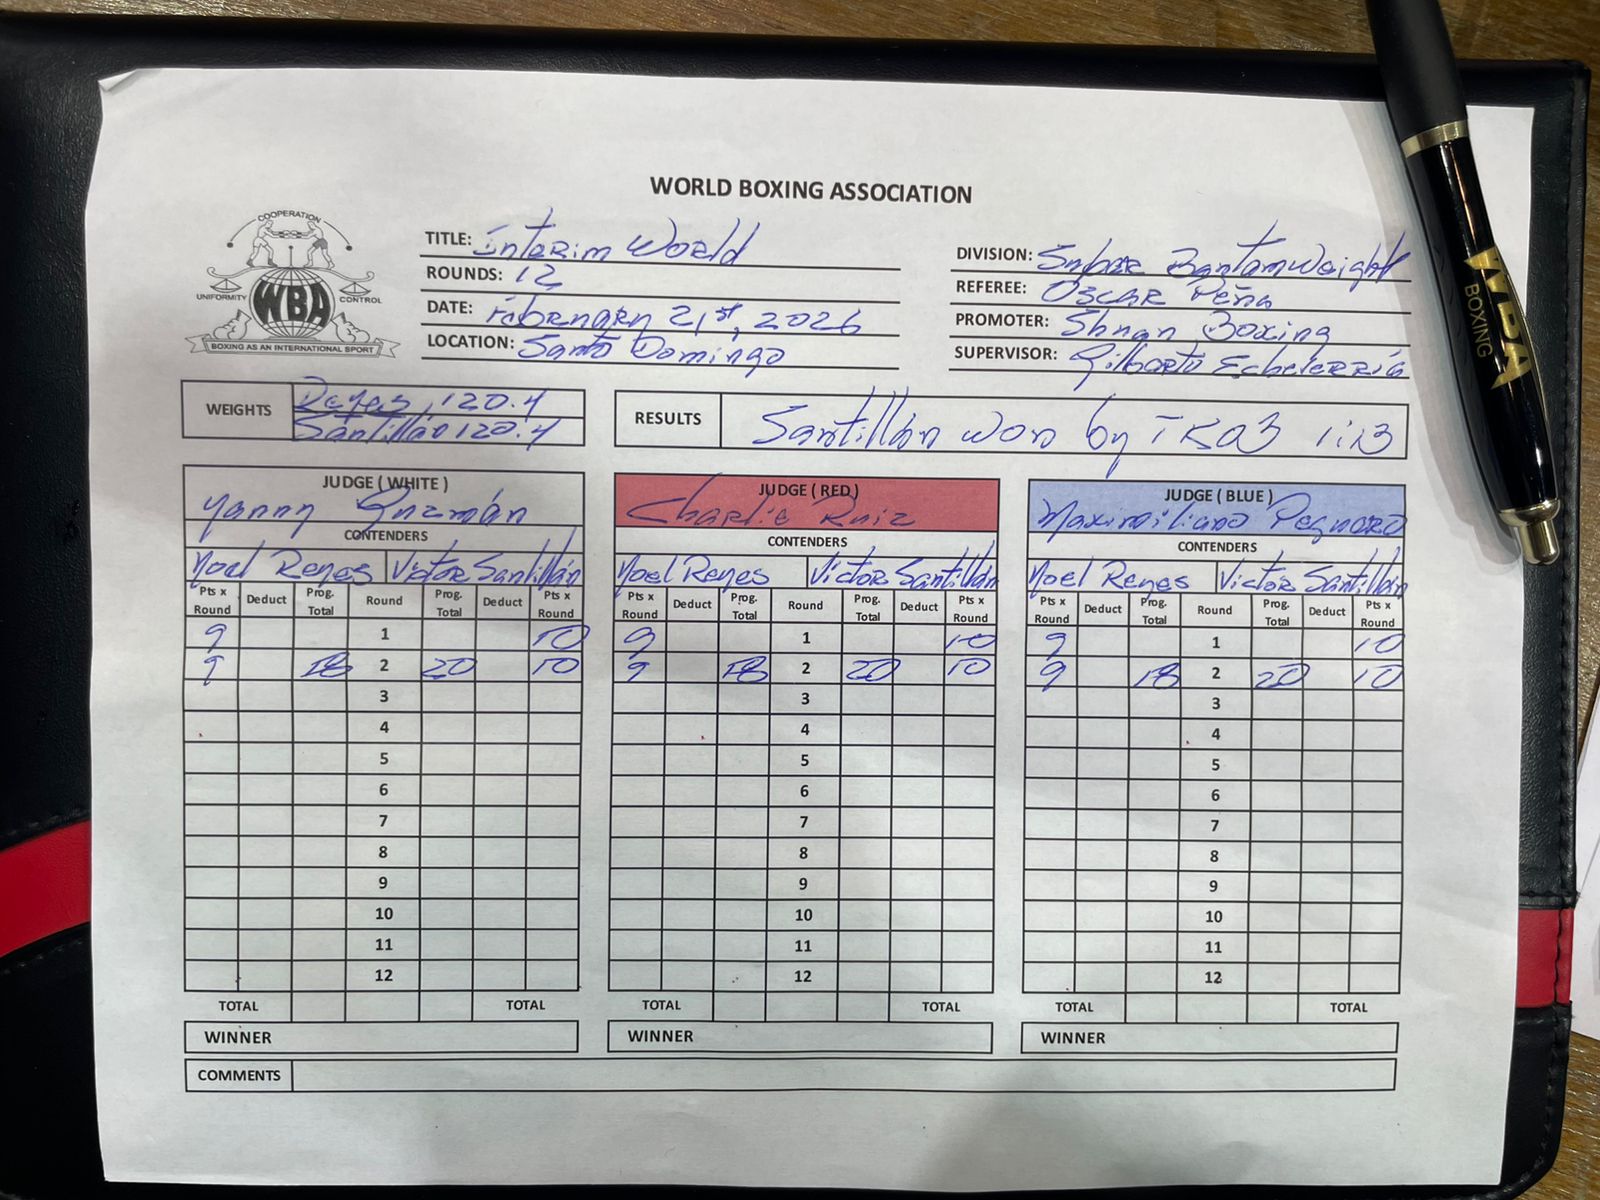 WORLD BOXING ASSOCIATION
COOPERATION
UNIFORMITY
WBA
CONTROL
BOXING AS AN INTERNATIONAL SPORT
TITLE: Interim World
ROUNDS: 12
DATE: February 21st, 2026
LOCATION: Santo Domingo
DIVISION: Super Bantamweight
REFEREE: Oscar Peña
PROMOTER: Shuan Boxing
SUPERVISOR: Gilberto Echeverría
WBA
BOXING
WEIGHTS
Reyes 120.4
Santillán 120.4
RESULTS
Santillán won by TKO3 1:13
JUDGE ( WHITE )
Yanny Guzmán
CONTENDERS
Noel Reyes Victor Santillán
Pts x Round Deduct Prog. Total Round Prog. Total Deduct Pts x Round
9 1 10
9 18 2 20 10
3
4
5
6
7
8
9
10
11
12
TOTAL TOTAL
WINNER
JUDGE ( RED )
Charlie Ruiz
CONTENDERS
Noel Reyes Victor Santillán
Pts x Round Deduct Prog. Total Round Prog. Total Deduct Pts x Round
9 1 10
9 18 2 20 10
3
4
5
6
7
8
9
10
11
12
TOTAL TOTAL
WINNER
JUDGE ( BLUE )
Maximiliano Peguero
CONTENDERS
Noel Reyes Victor Santillán
Pts x Round Deduct Prog. Total Round Prog. Total Deduct Pts x Round
9 1 10
9 18 2 20 10
3
4
5
6
7
8
9
10
11
12
TOTAL TOTAL
WINNER
COMMENTS